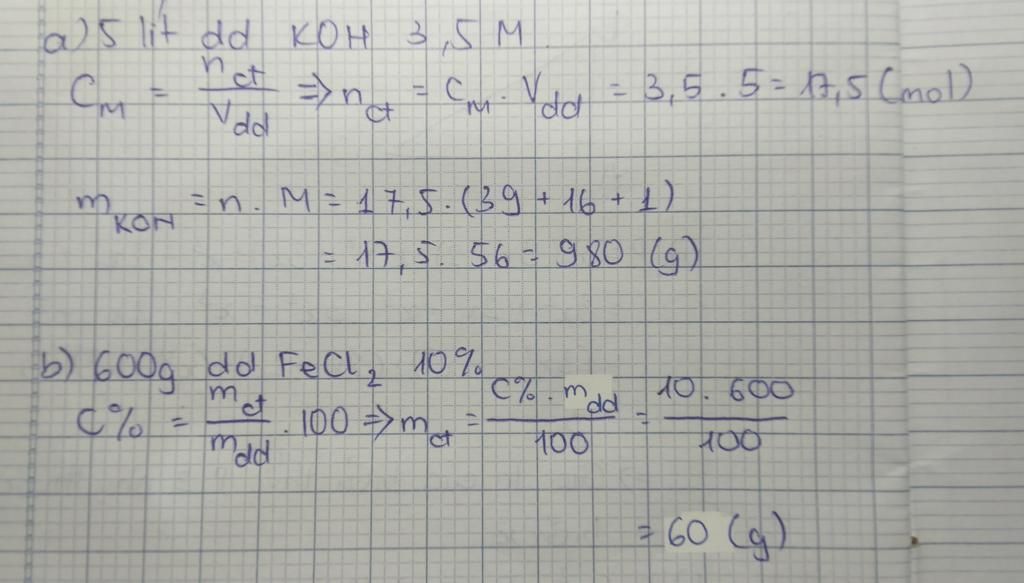 a) 5 lit dd KOH 3,5 M
C_M = n_ct / V_dd => n_ct = C_M . V_dd = 3,5 . 5 = 17,5 (mol)
m_KOH = n . M = 17,5 . (39 + 16 + 1)
= 17,5 . 56 = 980 (g)
b) 600g dd FeCl₂ 10%
C% = m_ct / m_dd . 100 => m_ct = C% . m_dd / 100 = 10 . 600 / 100
= 60 (g)